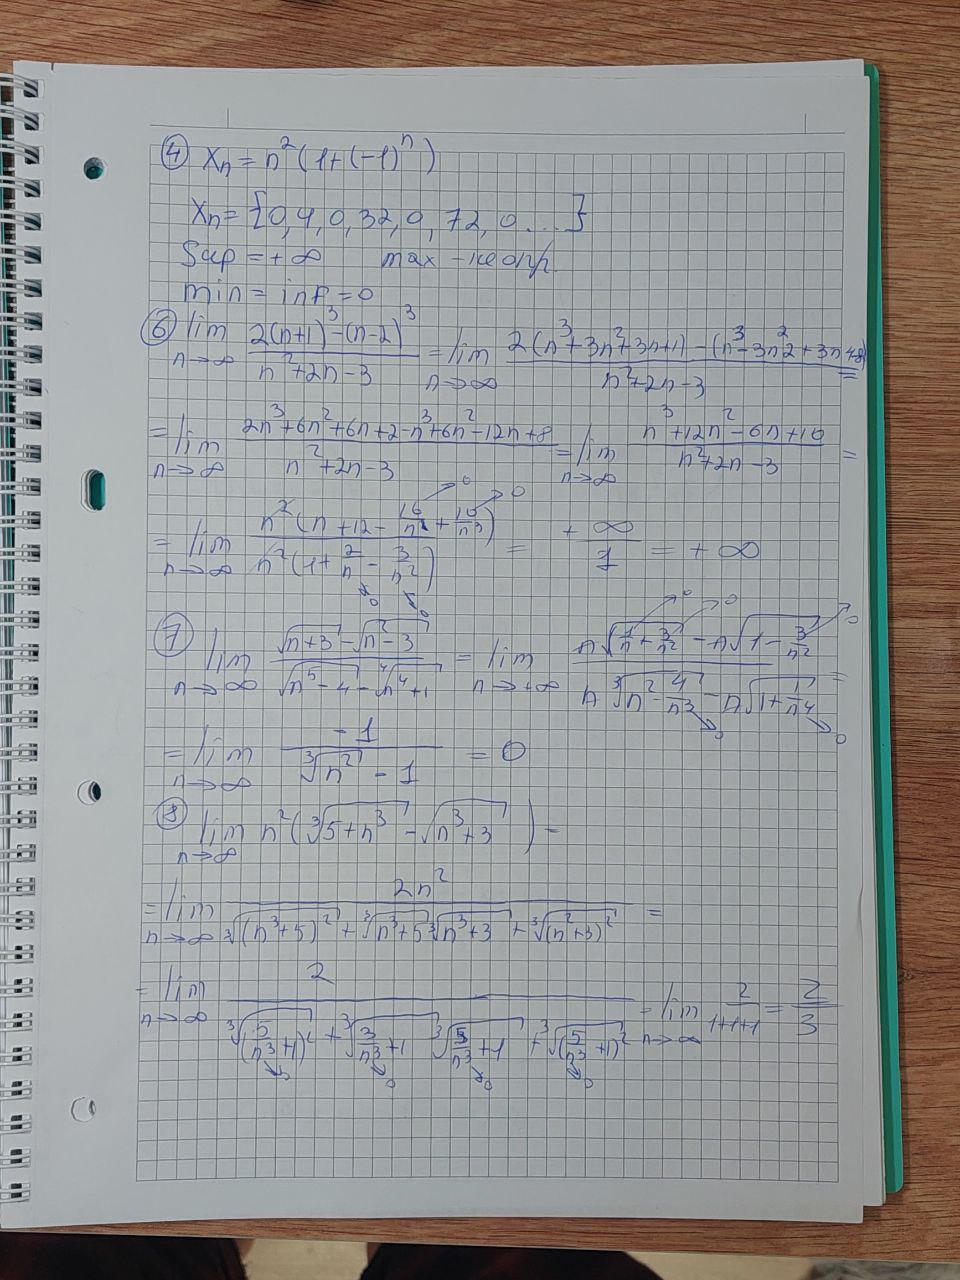 ④ Xₙ = n²(1+(-1)ⁿ)
Xₙ = {0, 4, 0, 32, 0, 72, 0 ... }
Sup = +∞ max - не опр
min = inf = 0
⑥ lim n→∞ (2(n+1)³-(n-2)³)/(n²+2n-3) = lim n→∞ (2(n³+3n²+3n+1)-(n³-3n²2+3n48))/(n²+2n-3) =
= lim n→∞ (2n³+6n²+6n+2-n³+6n²-12n+8)/(n²+2n-3) = lim n→∞ (n³+12n²-6n+10)/(n²+2n-3) =
= lim n→∞ (n²(n+12-16/n²→0+10/n³→0))/(n²(1+2/n→0-3/n²→0)) = +∞/1 = +∞
⑦ lim n→∞ (√(n+3)-√(n²-3))/(√(n⁵-4)-⁴√(n⁴+1)) = lim n→+∞ (n√(1/n→0+3/n²→0)-n√(1-3/n²→0))/(n ³√(n²-4/n³→0)-n√(1+1/n⁴→0)) =
= lim n→∞ (-1)/(³√(n²)-1) = 0
⑧ lim n→∞ n²(³√(5+n³)-√(n³+3)) =
= lim n→∞ 2n²/(³√((n³+5)²)+³√(n³+5) ³√(n³+3)+³√((n²+3)²)) =
= lim n→∞ 2/(³√((5/n³→0+1)²)+³√(3/n³→0+1) ³√(5/n³→0+1)+³√((5/n³→0+1)²)) = lim n→∞ 2/(1+1+1) = 2/3